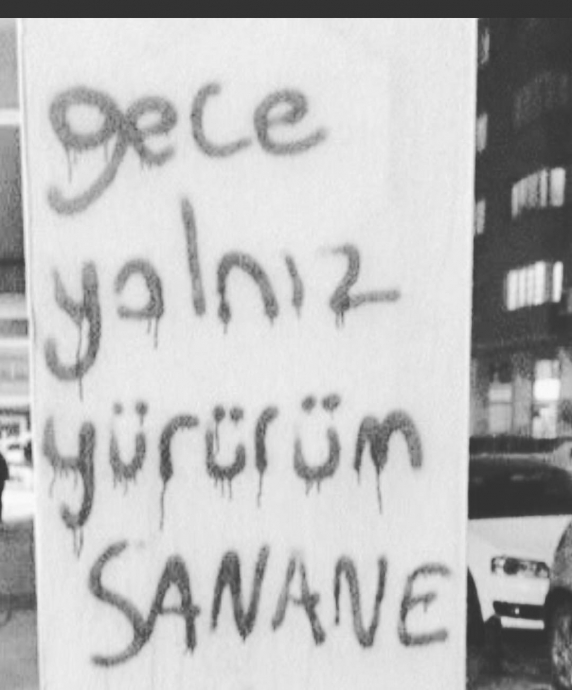 gece
yalnız
yürürüm
SANANE